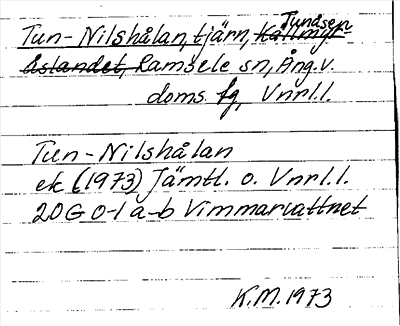 Tun-Nilshålan, tjärn, Tundsen
åslandet, Ramsele sn, Ång. v.
doms. fg, Vnrl.l.
Tun-Nilshålan
ek (1973) Jämtl. o. Vnrl.l.
20G 0-1 a-b Vimmarvattnet
K.M. 1973